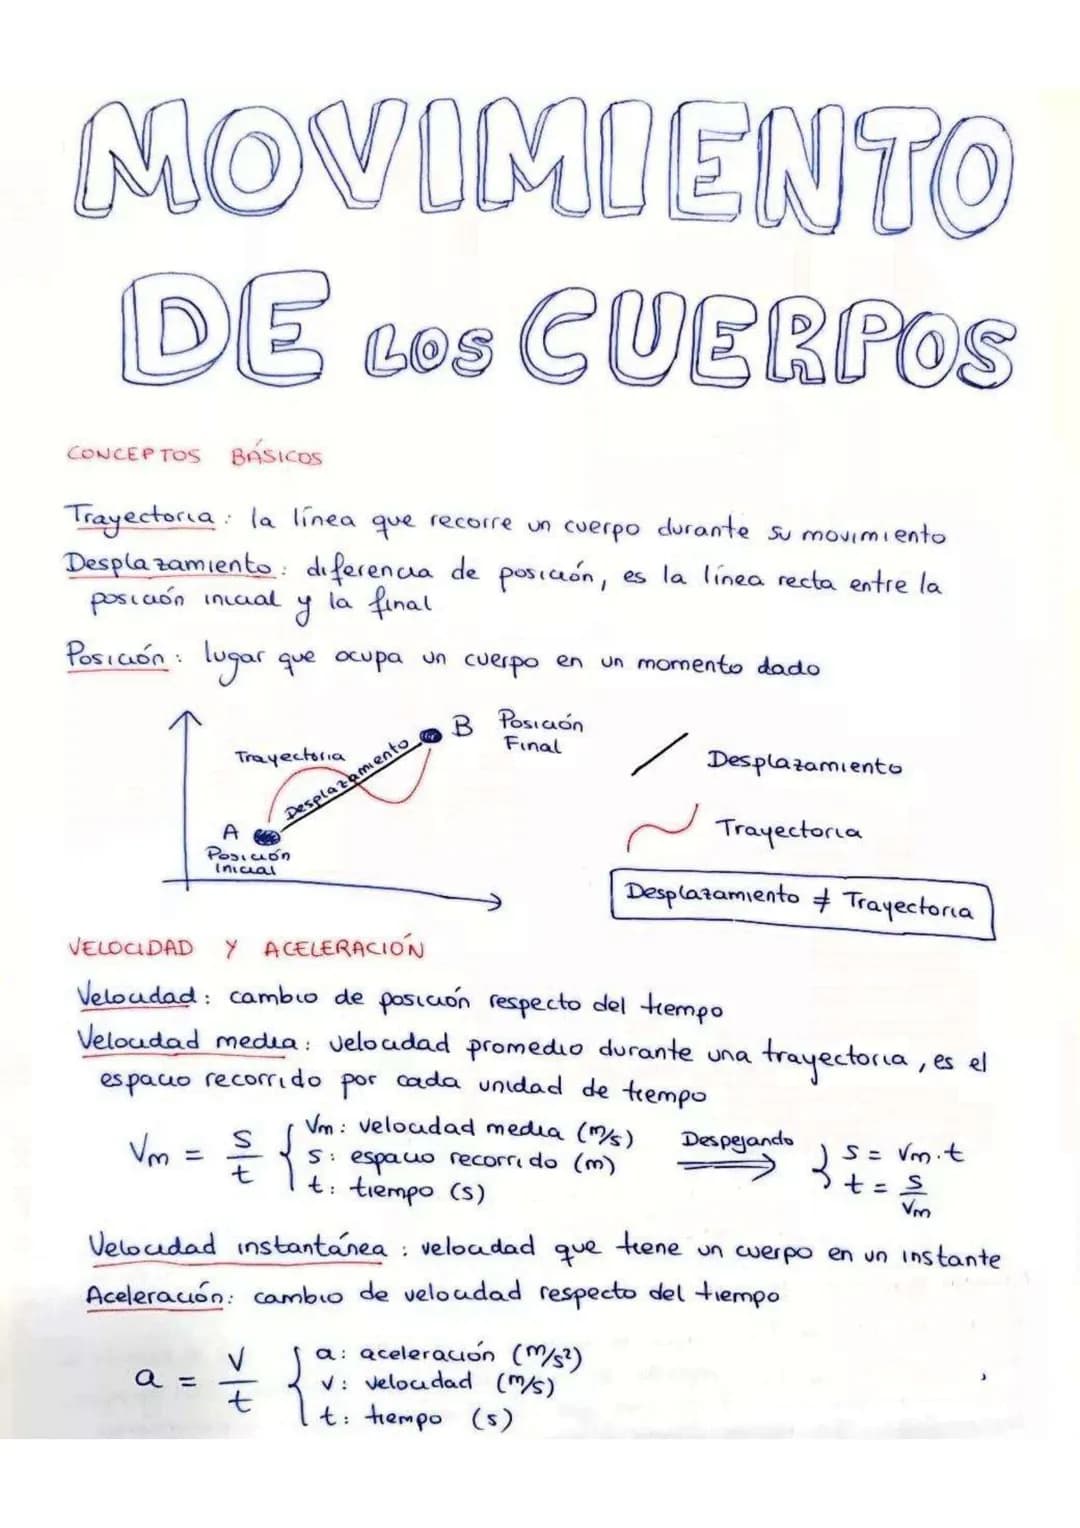 MOVIMIENTO
DE LOS CUERPOS
CONCEPTOS BÁSICOS
Trayectoria: la línea que recorre un cuerpo durante su movimiento
Desplazamiento: diferencia de posición, es la línea recta entre la
posición inicial y la final
Posición: lugar que ocupa un cuerpo en un momento dado
B Posición
Final
Trayectoria
Desplazamiento
A
Posición
Inicial
Desplazamiento
Trayectoria
Desplazamiento ≠ Trayectoria
VELOCIDAD Y ACELERACIÓN
Velocidad: cambio de posición respecto del tiempo
Velocidad media: velocidad promedio durante una trayectoria, es el
espacio recorrido por cada unidad de tiempo
Vm = s/t { Vm: velocidad media (m/s)
s: espacio recorrido (m)
t: tiempo (s)
Despejando ⇒ } s = Vm·t
t = s/Vm
Velocidad instantánea: velocidad que tiene un cuerpo en un instante
Aceleración: cambio de velocidad respecto del tiempo
a = v/t { a: aceleración (m/s²)
v: velocidad (m/s)
t: tiempo (s)